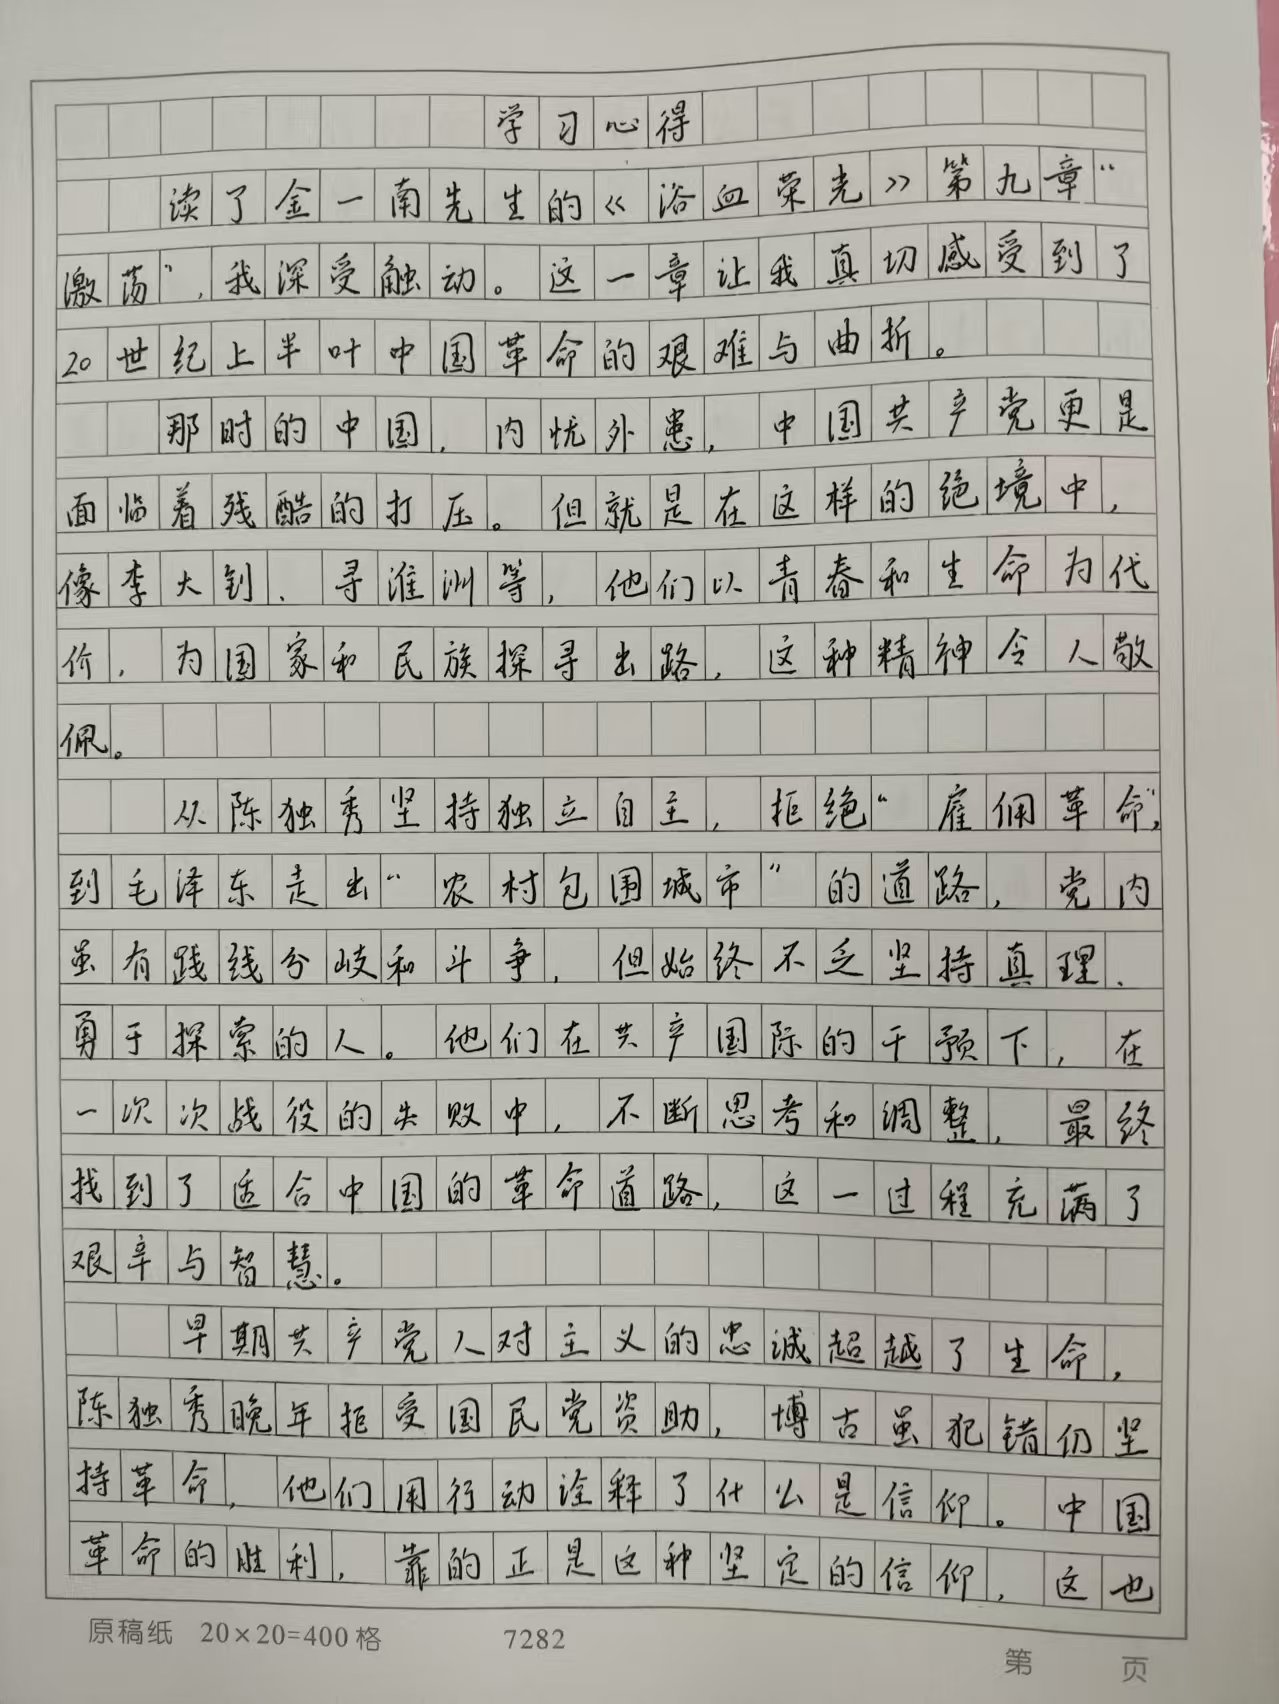 学习心得
读了金一南先生的《浴血荣光》第九章“
激荡”,我深受触动。这一章让我真切感受到了
20世纪上半叶中国革命的艰难与曲折。
那时的中国,内忧外患,中国共产党更是
面临着残酷的打压。但就是在这样的绝境中,
像李大钊、寻淮洲等,他们以青春和生命为代
价,为国家和民族探寻出路,这种精神令人敬
佩。
从陈独秀坚持独立自主,拒绝“雇佣革命”,
到毛泽东走出“农村包围城市”的道路,党内
虽有践线分歧和斗争,但始终不乏坚持真理、
勇于探索的人。他们在共产国际的干预下,在
一次次战役的失败中,不断思考和调整,最终
找到了适合中国的革命道路,这一过程充满了
艰辛与智慧。
早期共产党人对主义的忠诚超越了生命,
陈独秀晚年拒受国民党资助,博古虽犯错仍坚
持革命,他们用行动诠释了什么是信仰。中国
革命的胜利,靠的正是这种坚定的信仰,这也
原稿纸 20×20=400格 7282 第 页